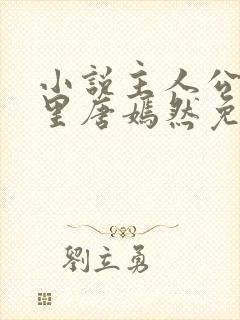 小説主人公
里唐嫣然免
劉立勇